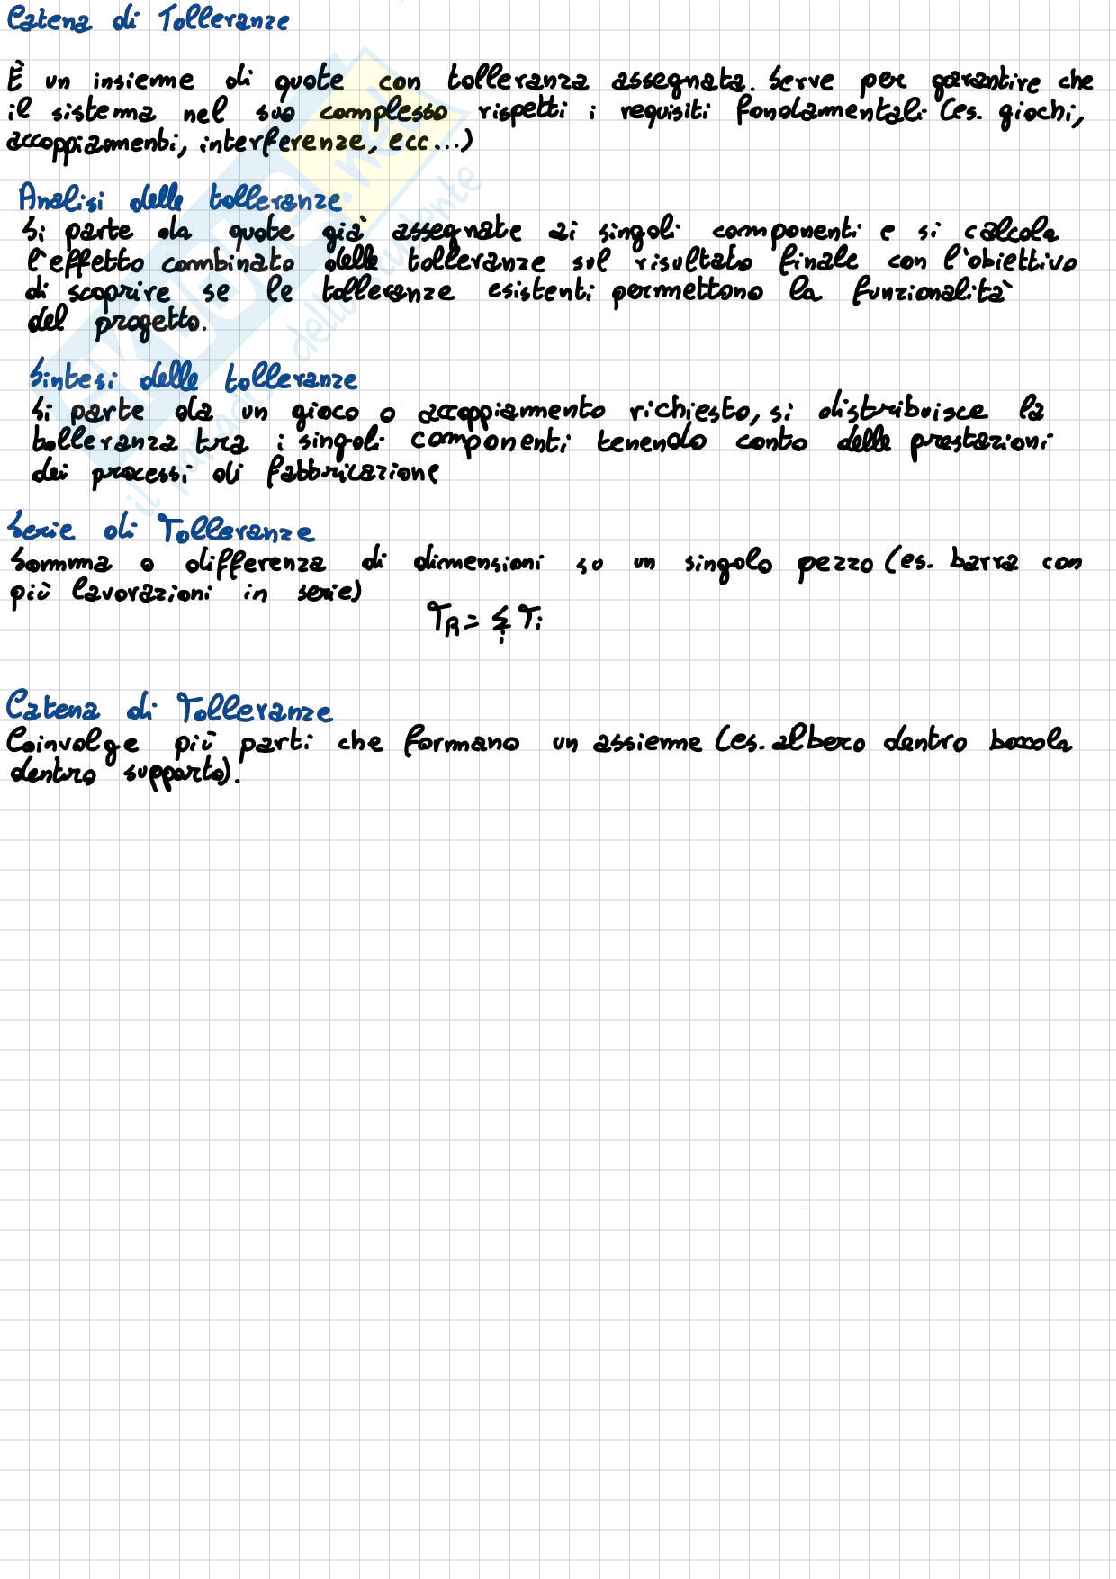 Catena di Tolleranze
È un insieme di quote con tolleranza assegnata. Serve per garantire che
il sistema nel suo complesso rispetti i requisiti fondamentali (es. giochi,
accoppiamenti, interferenze, ecc...)
Analisi delle tolleranze
Si parte da quote già assegnate ai singoli componenti e si calcola
l'effetto combinato delle tolleranze sul risultato finale con l'obiettivo
di scoprire se le tolleranze esistenti permettono la funzionalità
del progetto.
Sintesi delle tolleranze
Si parte da un gioco o accoppiamento richiesto, si distribuisce la
tolleranza tra i singoli componenti tenendo conto delle prestazioni
dei processi di fabbricazione
Serie di Tolleranze
Somma o differenza di dimensioni su un singolo pezzo (es. barra con
più lavorazioni in serie)
T_R = Σ_i T_i
Catena di Tolleranze
Coinvolge più parti che formano un assieme (es. albero dentro boccola
dentro supporto).